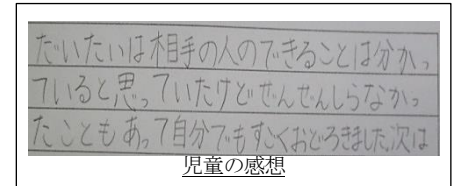 だいたいは相手の人のできることは分かっ
ていると思っていたけどぜんぜんしらなかっ
たこともあって自分でもすごくおどろきました。次は
児童の感想